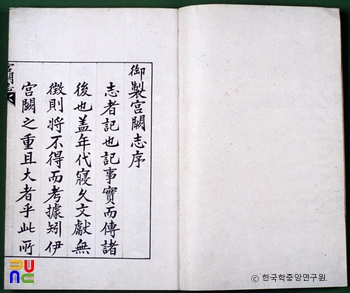 御製宮闕志序
志者記也記事實而傳諸
後也盖年代寢久文獻無
徴則将不得而考據矧伊
宮闕之重且大者乎此所
宮闕志
ⓒ한국학중앙연구원